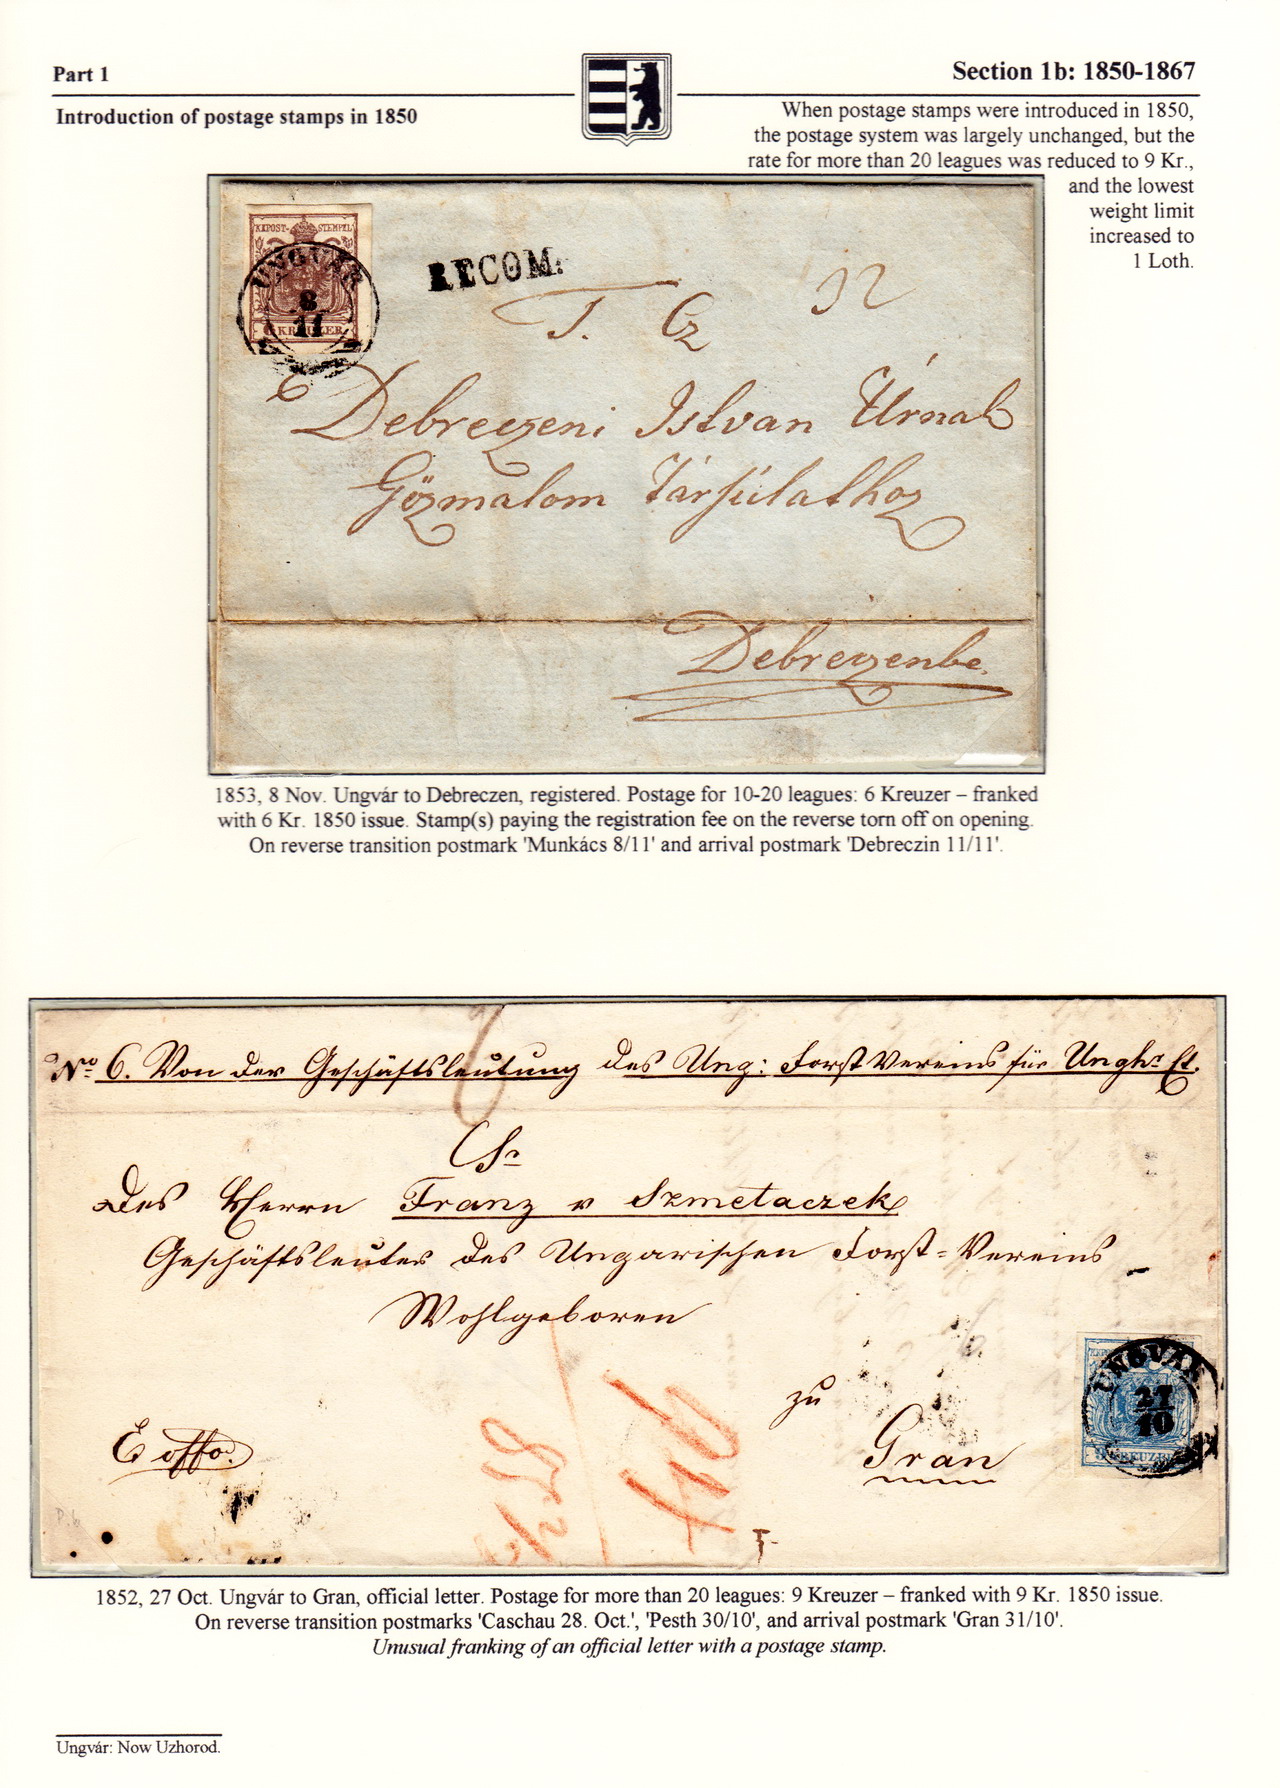 Part 1
Section 1b: 1850-1867
Introduction of postage stamps in 1850
When postage stamps were introduced in 1850,
the postage system was largely unchanged, but the
rate for more than 20 leagues was reduced to 9 Kr.,
and the lowest
weight limit
increased to
1 Loth.
KKPOST-STEMPEL
UNGVÁR
8
11
6 KREUZER
RECOM.
T. Cz
Debreczeni Istvan Úrnak
Gőzmalom Társúlathoz
Debreczenbe.
1853, 8 Nov. Ungvár to Debreczen, registered. Postage for 10-20 leagues: 6 Kreuzer – franked
with 6 Kr. 1850 issue. Stamp(s) paying the registration fee on the reverse torn off on opening.
On reverse transition postmark 'Munkács 8/11' and arrival postmark 'Debreczin 11/11'.
No 6. Von der Geschäftsleitung des Ung: Forst Vereins für Ungh
Des Herrn Franz v Szmetaczek
Geschäftsleiter des Ungarischen Forst=Vereins
Wohlgeboren
zu
Gran
E offo.
UNGVÁR
27
10
9 KREUZER
1852, 27 Oct. Ungvár to Gran, official letter. Postage for more than 20 leagues: 9 Kreuzer – franked with 9 Kr. 1850 issue.
On reverse transition postmarks 'Caschau 28. Oct.', 'Pesth 30/10', and arrival postmark 'Gran 31/10'.
Unusual franking of an official letter with a postage stamp.
Ungvár: Now Uzhorod.